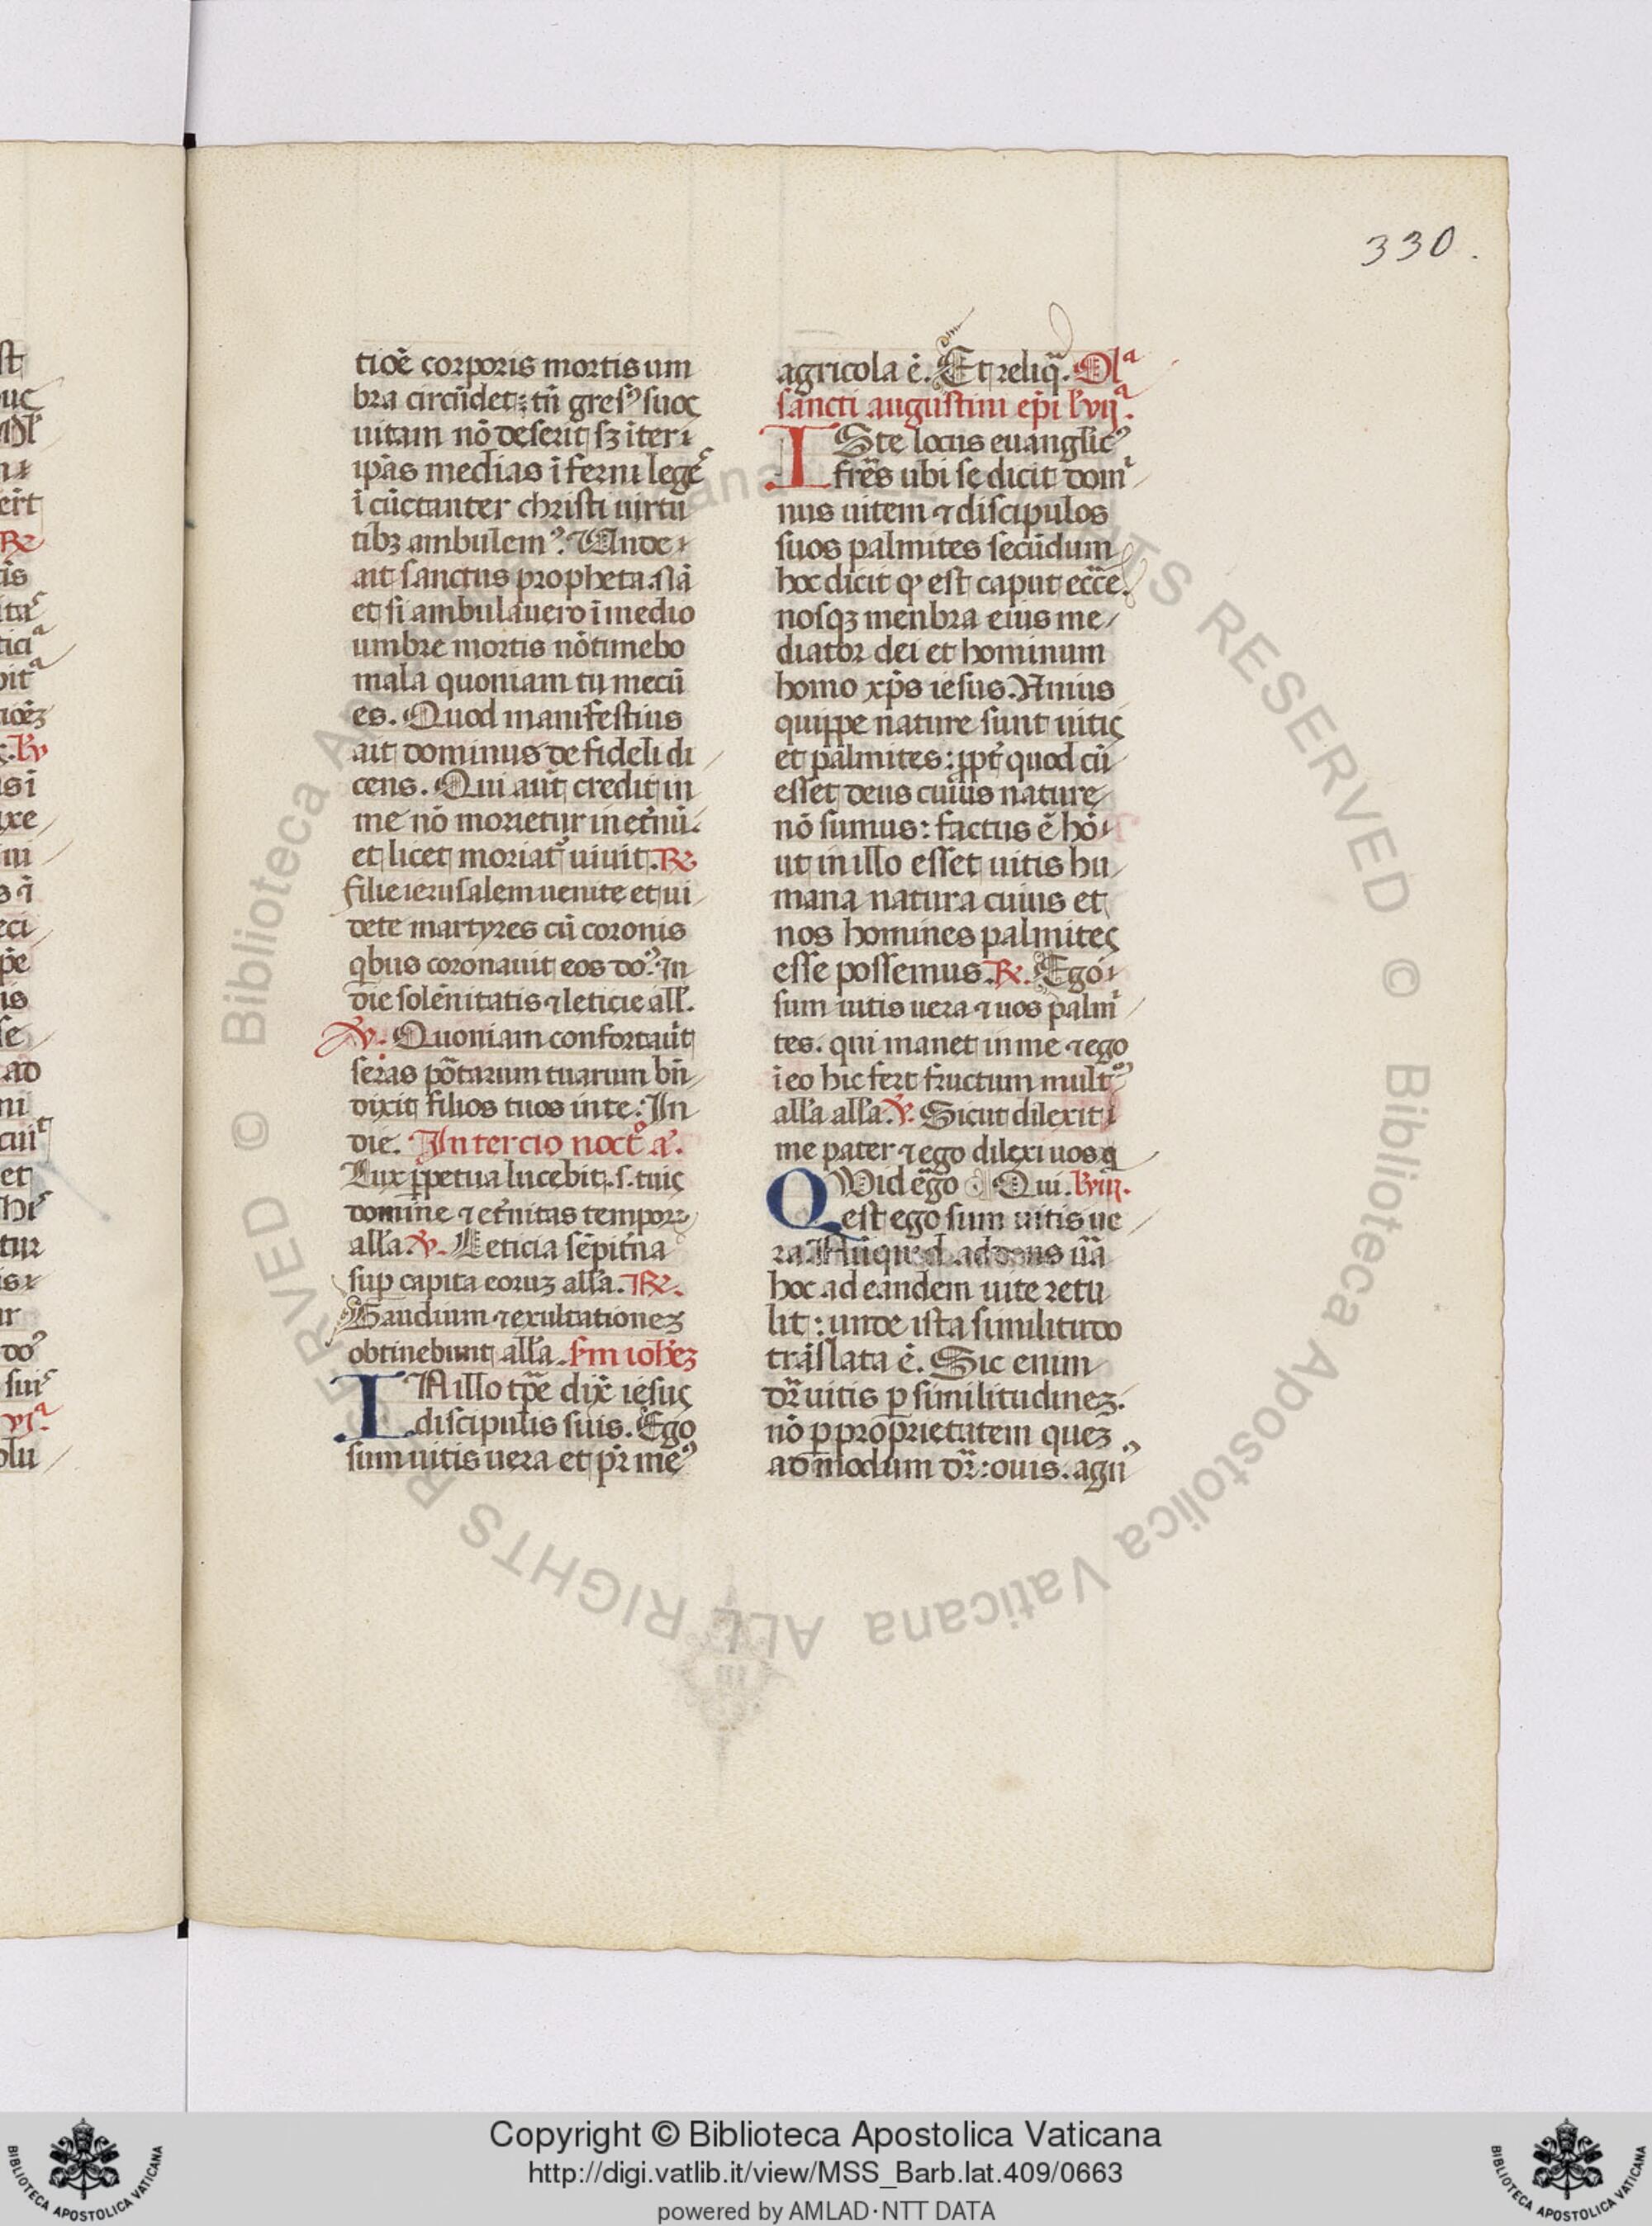 330.
tioē corporis mortis um
bra circūdet: tn̄ gres⁹ suoc
uitam nō deserit sꝫ iter
ip̄as medias īferni leges
īcūctanter christi uirtu
tibꝫ ambulem⁹. Unde
ait sanctus propheta. Nā
et si ambulauero ī medio
umbre mortis nō timebo
mala quoniam tu mecū
es. Quod manifestius
ait dominus de fideli di
cens. Qui aūt credit in
me nō morietur in et̄nū.
et licet moriat᷑ uiuit. ℟
filie ierusalem uenite et ui
dete martyres cū coronis
qbus coronauit eos do⁹. In
die solēnitatis ⁊ leticie all̄.
℣. Quoniam confortauit
seras portarum tuarum bn̄
dixit filios tuos in te. In
die. In tercio noct̊ a̓.
Lux ꝑpetua lucebit. s. tuis
domine ⁊ et̄nitas tempoꝝ
all̄a. ℣. Leticia sēpit̄na
suꝑ capita eoruꝫ all̄a. ℟.
Gaudium ⁊ exultationeꝫ
obtinebunt all̄a. sm̄ ioh̄eꝫ
IN illo tp̄e dix̄ iesus
discipulis suis. Ego
sum uitis uera et pr̄ me⁹
agricola ē. Et reliq̄. Ol̄ᵃ
sancti augustini ep̄i lvijᵃ.
ISte locus euangelic⁹
fr̄es ubi se dicit domi
nus uitem ⁊ discipulos
suos palmites secūdum
hoc dicit qͥ est caput ecc̄e.
nosqꝫ menbra eius me
diator dei et hominum
homo xp̄s iesus. Unius
quippe nature sunt uitis
et palmites: ꝓpt̄ quod cū
esset deus cuius nature
nō sumus: factus ē hō
ut in illo esset uitis hu
mana natura cuius et
nos homines palmites
esse possemus. ℟. Ego
sum uitis uera ⁊ uos palmi
tes. qui manet in me ⁊ ego
ī eo hic fert fructum mult⁹
all̄a all̄a. ℣. Sicut dilexit
me pater ⁊ ego dilexi uos. q
QVid ēgo Qui. lviij.
est ego sum uitis ue
ra. Nūquid
hoc ad eandem uite retu
lit: unde ista similitudo
trāslata ē. Sic enim
dr̄ uitis ꝑ similitudineꝫ.
nō ꝑ proprietatem queꝫ
admodum dr̄: ouis. agn⁹
Copyright © Biblioteca Apostolica Vaticana
http://digi.vatlib.it/view/MSS_Barb.lat.409/0663
powered by AMLAD·NTT DATA